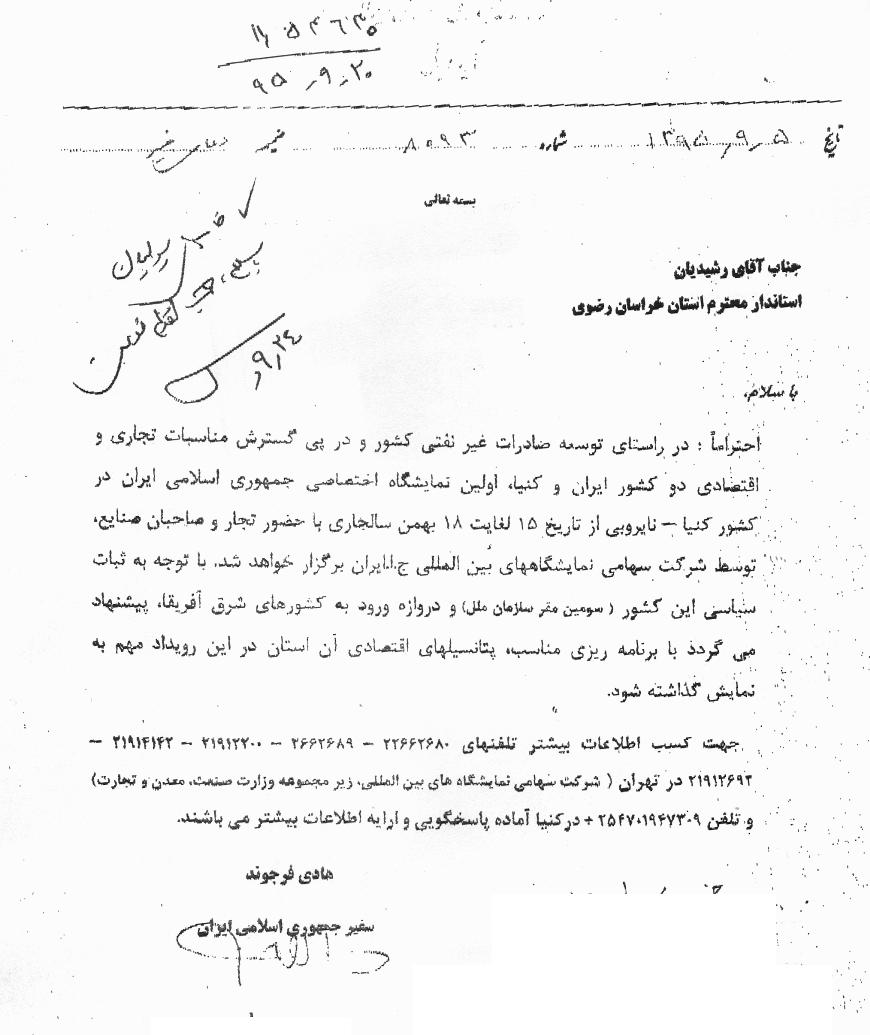 ۱۱۵۴۶۳۰
۹۵،۹،۲۰
تاریخ ۱۳۹۵،۹،۵ شماره ۸۰۹۳
بسمه تعالی
۹،۲۴
جناب آقای رشیدیان
استاندار محترم استان خراسان رضوی
با سلام،
احتراماً ؛ در راستای توسعه صادرات غیر نفتی کشور و در پی گسترش مناسبات تجاری و
اقتصادی دو کشور ایران و کنیا، اولین نمایشگاه اختصاصی جمهوری اسلامی ایران در
کشور کنیا – نایروبی از تاریخ ۱۵ لغایت ۱۸ بهمن سالجاری با حضور تجار و صاحبان صنایع،
توسط شرکت سهامی نمایشگاههای بین المللی ج.ا.ایران برگزار خواهد شد. با توجه به ثبات
سیاسی این کشور ( سومین مقر سازمان ملل) و دروازه ورود به کشورهای شرق آفریقا، پیشنهاد
می گردد با برنامه ریزی مناسب، پتانسیلهای اقتصادی آن استان در این رویداد مهم به
نمایش گذاشته شود.
جهت کسب اطلاعات بیشتر تلفنهای ۲۲۶۶۲۶۸۰ – ۲۶۶۲۶۸۹ – ۲۱۹۱۲۲۰۰ – ۲۱۹۱۴۱۴۲ –
۲۱۹۱۲۶۹۲ در تهران ( شرکت سهامی نمایشگاه های بین المللی، زیر مجموعه وزارت صنعت، معدن و تجارت)
و تلفن ۲۵۴۷۰۱۹۴۷۳۰۹ + درکنیا آماده پاسخگویی و ارایه اطلاعات بیشتر می باشند.
هادی فرجوند
سفیر جمهوری اسلامی ایران